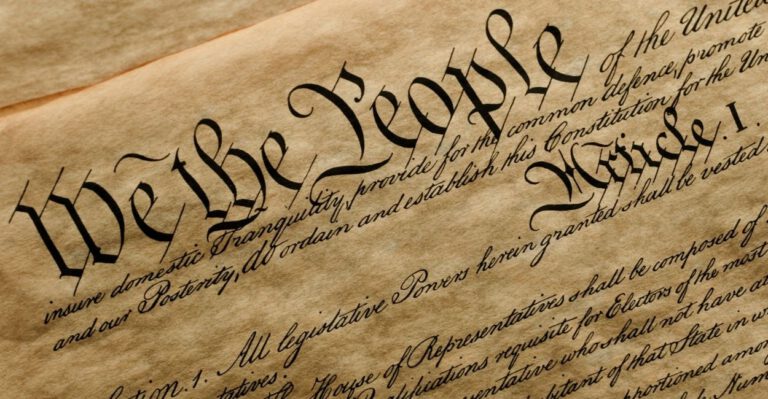 We the People of the United
insure domestic Tranquility, provide for the common defence, promote
and our Posterity, do ordain and establish this Constitution for the Un
Article. I.
ction. 1. All legislative Powers herein granted shall be vested
House of Representatives shall be composed of
tatives.
alifications requisite for Electors of the most
entative who shall not have at
bitant of that State in w
portioned amon
Num